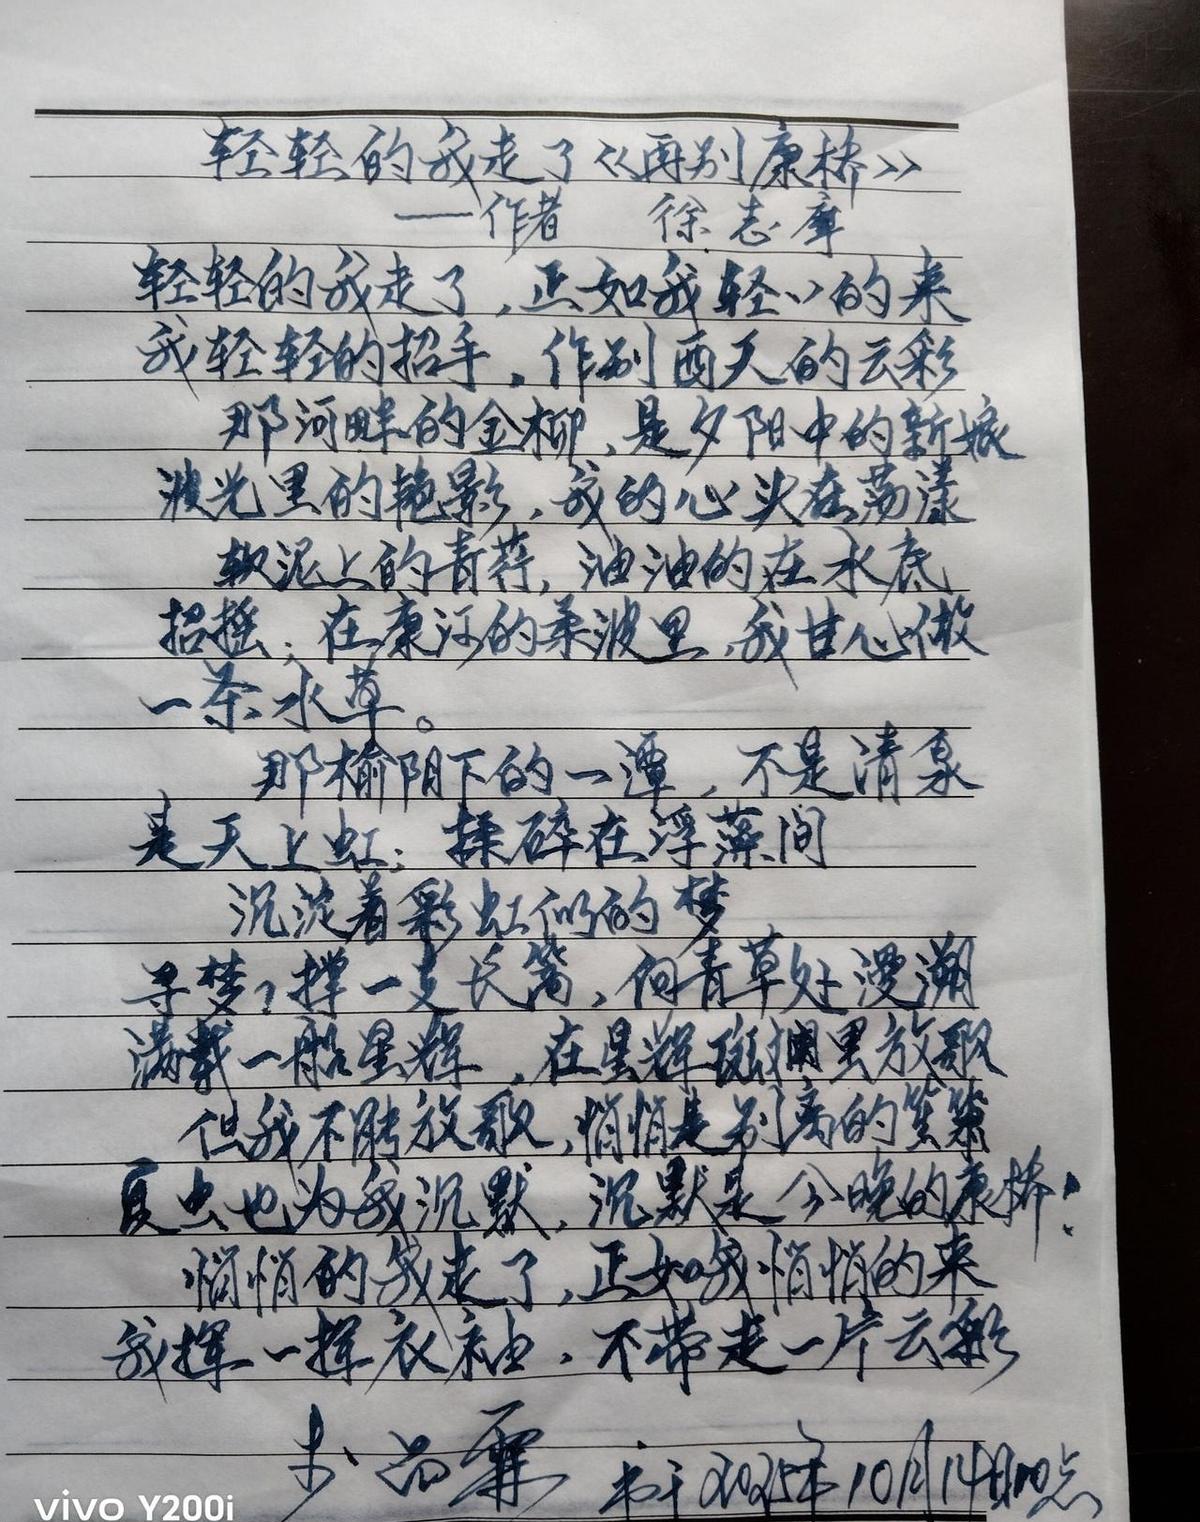 轻轻的我走了《再别康桥》
——作者 徐志摩
轻轻的我走了,正如我轻ヽヽ的来
我轻轻的招手,作别西天的云彩
那河畔的金柳,是夕阳中的新娘
波光里的艳影,我的心头在荡漾
软泥上的青荇,油油的在水底
招摇;在康河的柔波里,我甘心做
一条水草。
那榆阴下的一潭,不是清泉
是天上虹;揉碎在浮藻间
沉淀着彩虹似的梦
寻梦?撑一支长篙,向青草处漫溯
满载一船星辉,在星辉斑斓里放歌
但我不能放歌,悄悄是别离的笙箫
夏虫也为我沉默,沉默是今晚的康桥!
悄悄的我走了,正如我悄悄的来
我挥一挥衣袖,不带走一片云彩
品霖 书于2025年10月14日10点
vivo Y200i